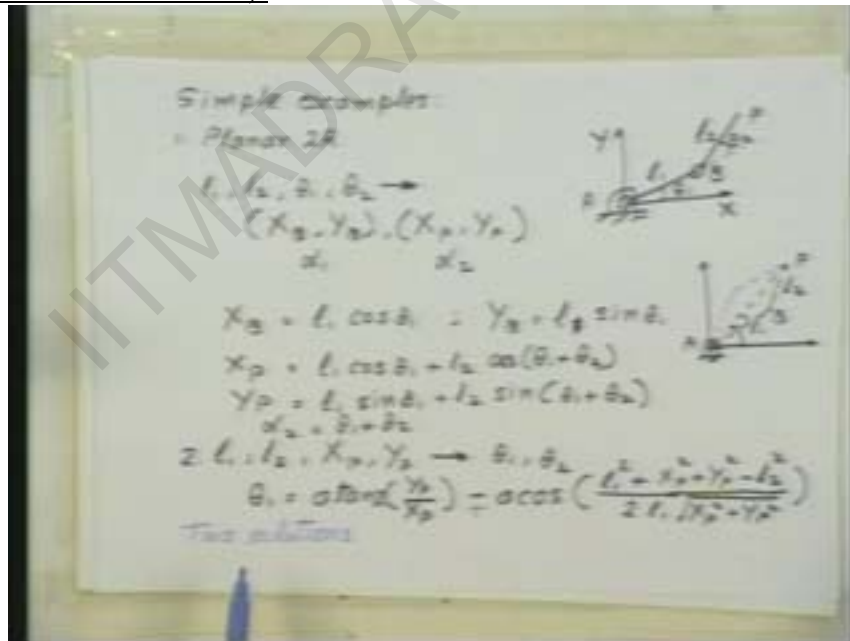 Simple examples:
Planar 2R
l₁, l₂, θ₁, θ₂ →
(X_B, Y_B), (X_P, Y_P)
α₁ α₂
X_B = l₁ cosθ₁ Y_B = l₁ sinθ₁
X_P = l₁ cosθ₁ + l₂ cos(θ₁+θ₂)
Y_P = l₁ sinθ₁ + l₂ sin(θ₁+θ₂)
α₂ = θ₁+θ₂
2. l₁, l₂, X_P, Y_P → θ₁, θ₂
θ₁ = atan2(Y_P/X_P) ± acos((l₁² + X_P² + Y_P² - l₂²)/(2 l₁ √(X_P² + Y_P²)))
Two solutions
Y l₂ P
l₁ B
X
P
l₂
B
A
IITMADRA